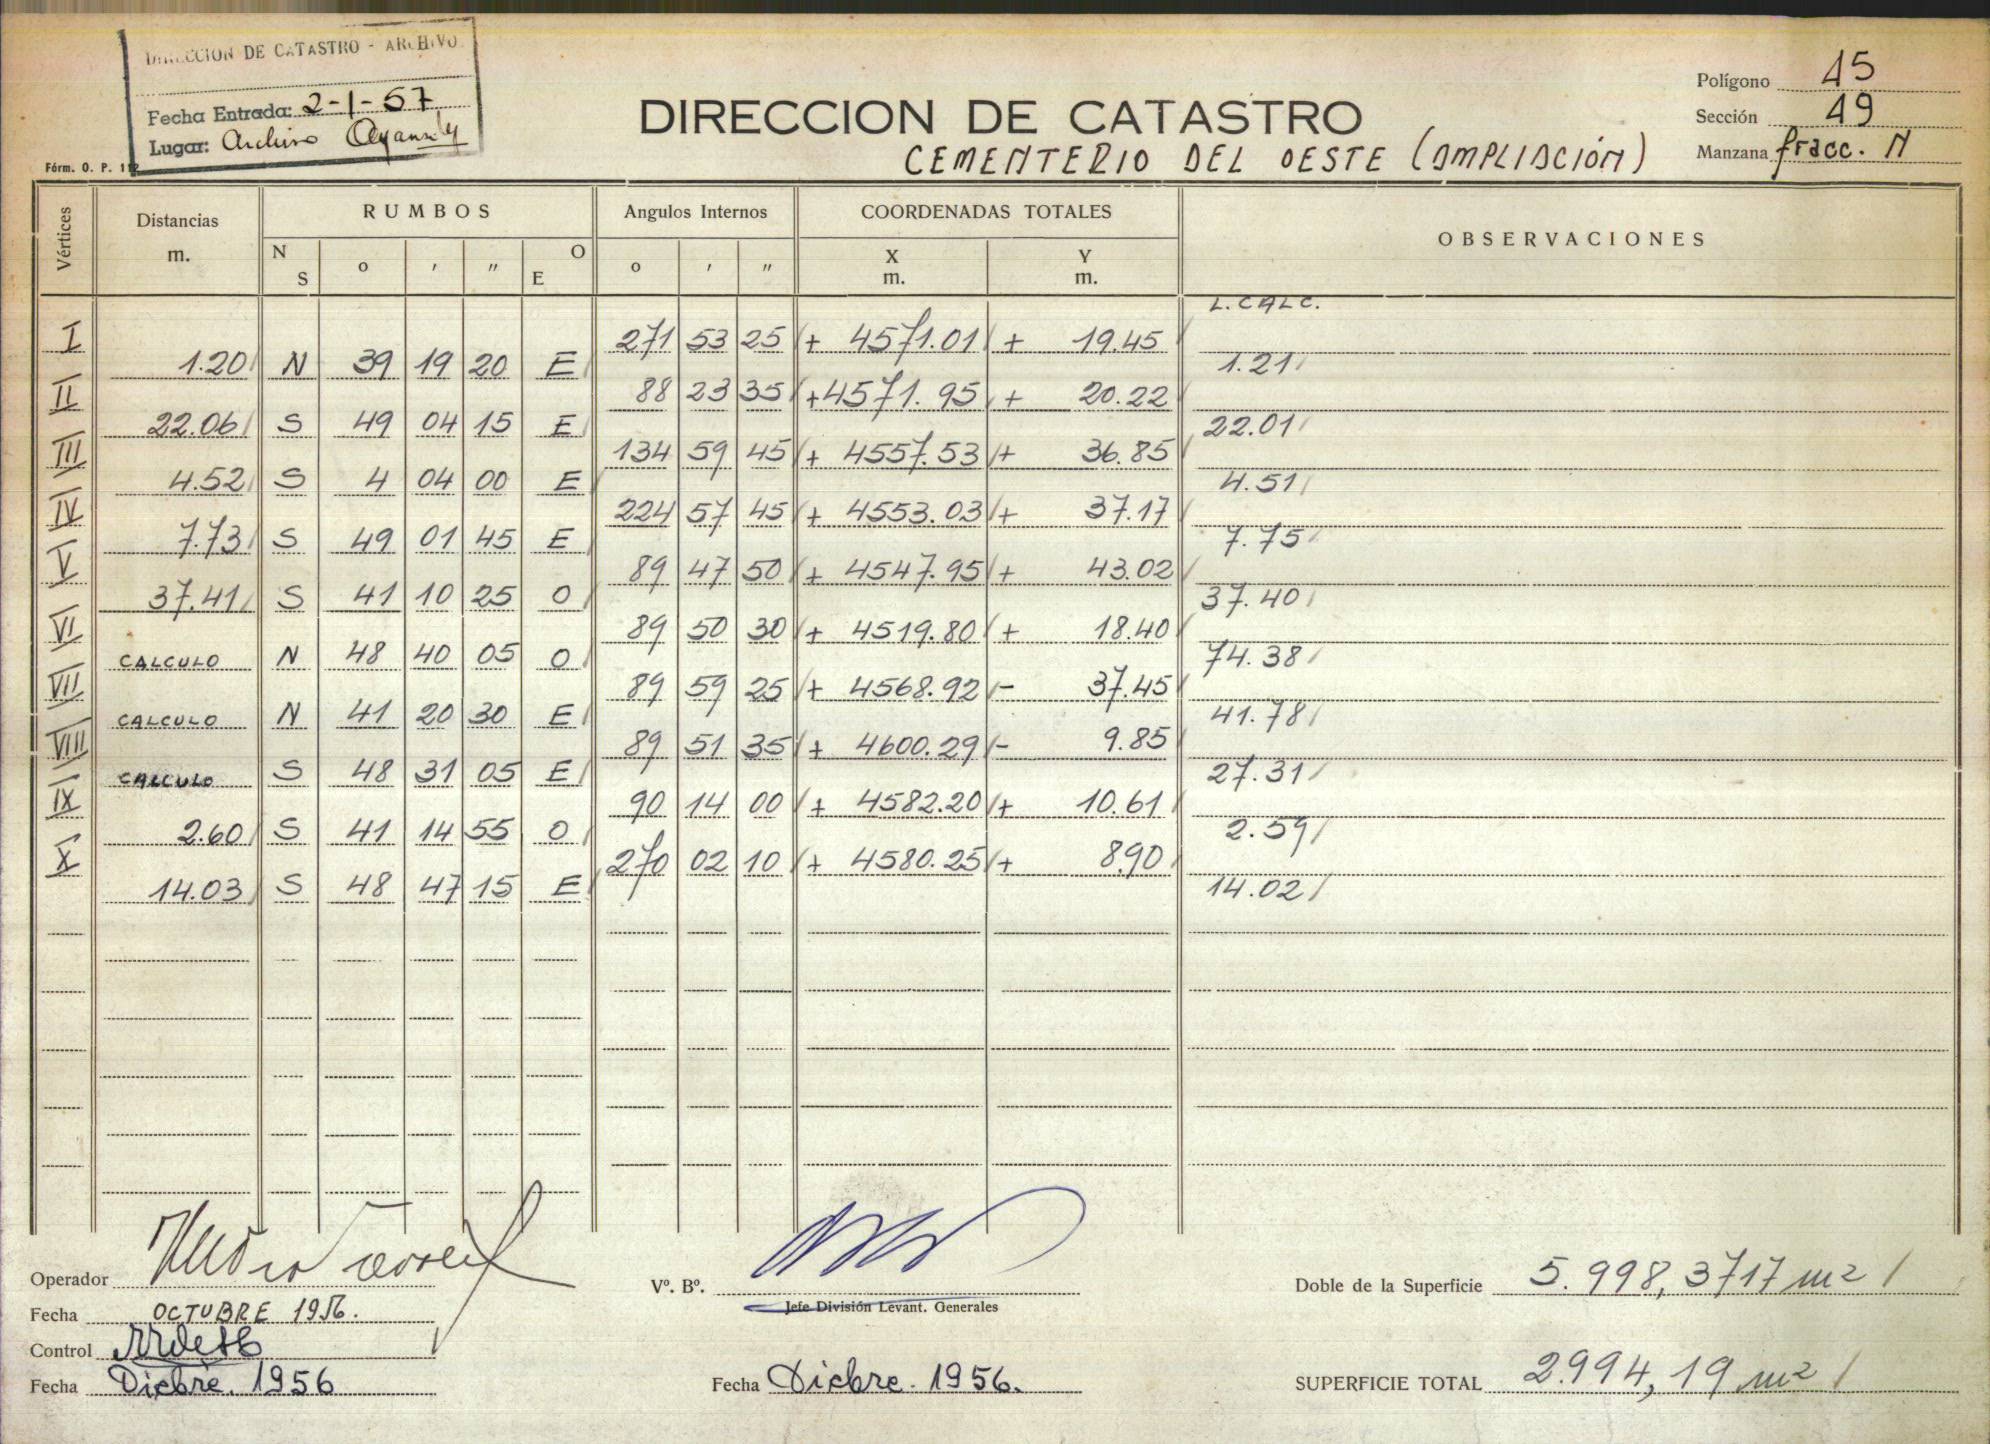 DIRECCION DE CATASTRO - ARCHIVO
Fecha Entrada: 2-1-57
Lugar: Archivo
Fórm. O. P. 112
DIRECCION DE CATASTRO
CEMENTERIO DEL OESTE (AMPLIACIÓN)
Polígono 45
Sección 49
Manzana fracc. N
Vértices Distancias m. RUMBOS Angulos Internos COORDENADAS TOTALES OBSERVACIONES
N S o ' " O E o ' " X m. Y m.
L. CALC.
I 271 53 25 + 4571.01 + 19.45
1.20 N 39 19 20 E 1.21
II 88 23 35 + 4571.95 + 20.22
22.06 S 49 04 15 E 22.01
III 134 59 45 + 4557.53 + 36.85
4.52 S 4 04 00 E 4.51
IV 224 57 45 + 4553.03 + 37.17
7.73 S 49 01 45 E 7.75
V 89 47 50 + 4547.95 + 43.02
37.41 S 41 10 25 O 37.40
VI 89 50 30 + 4519.80 + 18.40
CALCULO N 48 40 05 O 74.38
VII 89 59 25 + 4568.92 - 37.45
CALCULO N 41 20 30 E 41.78
VIII 89 51 35 + 4600.29 - 9.85
CALCULO S 48 31 05 E 27.31
IX 90 14 00 + 4582.20 + 10.61
2.60 S 41 14 55 O 2.59
X 270 02 10 + 4580.25 + 8.90
14.03 S 48 47 15 E 14.02
Operador
Fecha OCTUBRE 1956.
Control
Fecha Dicbre. 1956
Vº. Bº.
Jefe División Levant. Generales
Fecha Dicbre. 1956.
Doble de la Superficie 5.998,3717 m2
SUPERFICIE TOTAL 2.994,19 m2